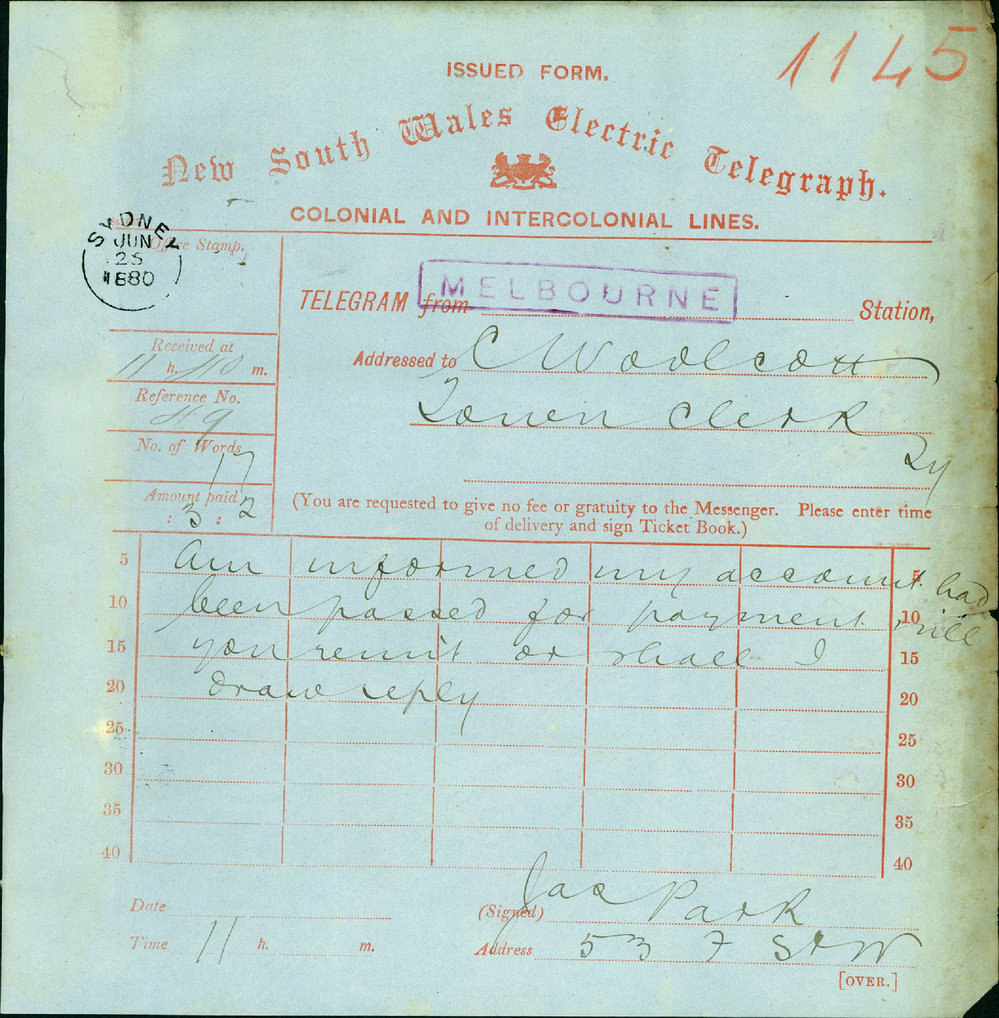 1145
ISSUED FORM.
New South Wales Electric Telegraph.
COLONIAL AND INTERCOLONIAL LINES.
Office Stamp.
SYDNEY
JUN
25
1880
TELEGRAM from MELBOURNE Station,
Received at
11 h. 40 m.
Addressed to C Woolcott
Reference No.
49
Town Clerk
No. of Words
17
Sy
Amount paid
: 3 : 2
(You are requested to give no fee or gratuity to the Messenger. Please enter time
of delivery and sign Ticket Book.)
5 Am informed my account had 5
10 been passed for payment will 10
15 you remit or shall I 15
20 draw reply 20
25 25
30 30
35 35
40 40
Date
(Signed) Jas Park
Time 11 h. m.
Address 53 F St W
[OVER.]